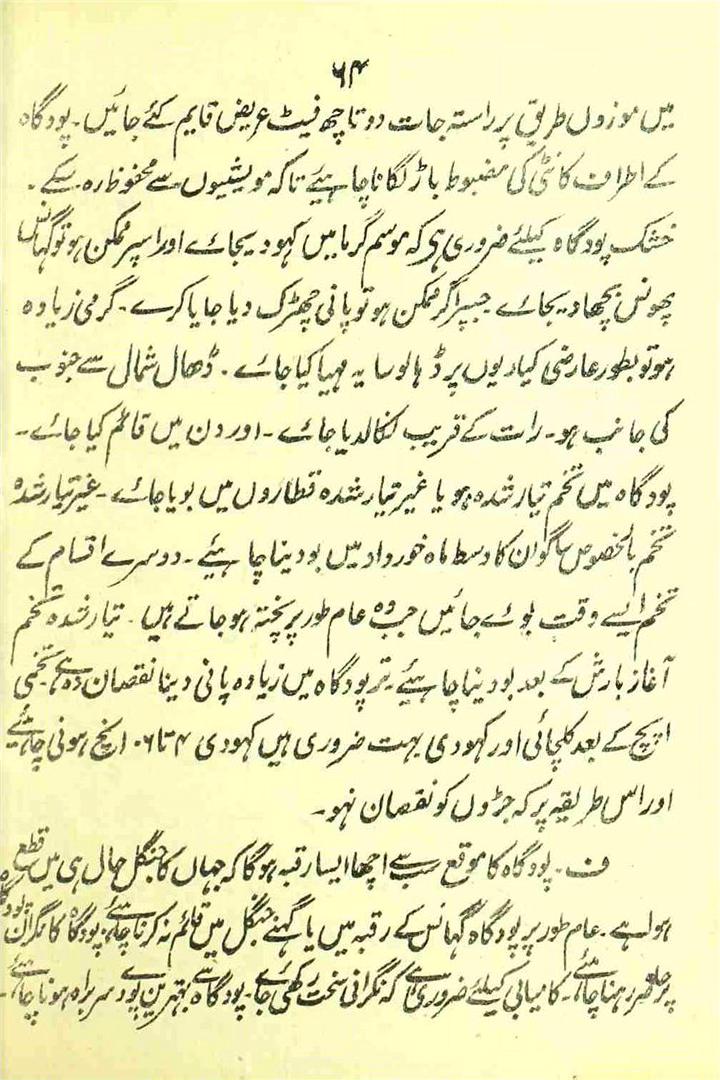 ۶۴
میں موزوں طریق پر راستہ جات دو تا چھ فیٹ عریض قایم کئے جائیں۔ پودگاہ
کے اطراف کانٹی کی مضبوط باڑ لگانا چاہیئے تاکہ مویشیوں سے محفوظ رہ سکے۔
خشک پودگاہ کیلئے ضروری ہی کہ موسم گرما میں کہود دیجائے اور اسپر ممکن ہو تو گہانس
پھونس بچھا دیجائے جسپر اگر ممکن ہو تو پانی چھڑک دیا جایا کرے۔ گرمی زیادہ
ہو تو بطور عارضی کیاریوں پر ڈہالو سایہ مہیا کیا جائے۔ ڈھال شمال سے جنوب
کی جانب ہو۔ رات کے قریب نکالدیا جائے۔ اور دن میں قائم کیا جائے۔
پودگاہ میں تخم تیار شدہ ہو یا غیر تیار شدہ قطاروں میں بویا جائے۔ غیر تیار شدہ
تخم بالخصوص ساگوان کا وسط ماہ خورداد میں بودینا چاہیئے۔ دوسرے اقسام کے
تخم ایسے وقت بوے جائیں جب وہ عام طور پر پختہ ہو جاتے ہیں۔ تیار شدہ تخم
آغاز بارش کے بعد بودینا چاہیئے۔ تر پودگاہ میں زیادہ پانی دینا نقصان دہ ہے تخمی
اپج کے بعد کلچائی اور کہودی بہت ضروری ہیں کہودی ۴ تا ۶۰ انچ ہونی چاہئیے
اور اس طریقہ پر کہ جڑوں کو نقصان نہو۔
ف۔ پودگاہ کا موقع سب سے اچھا ایسا رقبہ ہوگا کہ جہاں کا جنگل حال ہی میں قطع
ہوا ہے۔ عام طور پر پودگاہ گہانس کے رقبہ میں یا گہنے جنگل میں قائم نہ کرنا چاہئے، پودگاہ کا نگران پودگاہ
پر حاضر رہنا چاہئے۔ کامیابی کیلئے ضروری ہے کہ نگرانی سخت رکھی جائے۔ پودگاہ سے بہترین پود سربراہ ہونا چاہئے۔